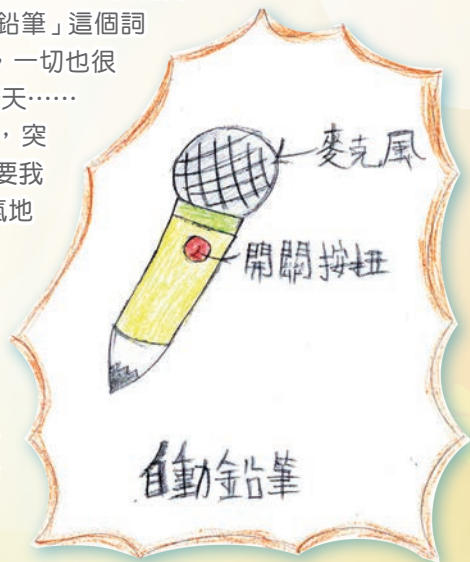 鉛筆」這個詞
，一切也很
天……
，突
要我
氣地
麥克風
開關按鈕
自動鉛筆